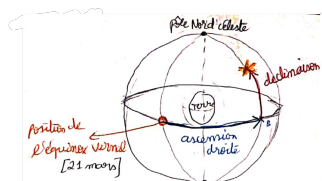 pôle Nord céleste
declinaison
Terre
Position de
l'équinoxe vernal
[21 mars]
ascension
droite